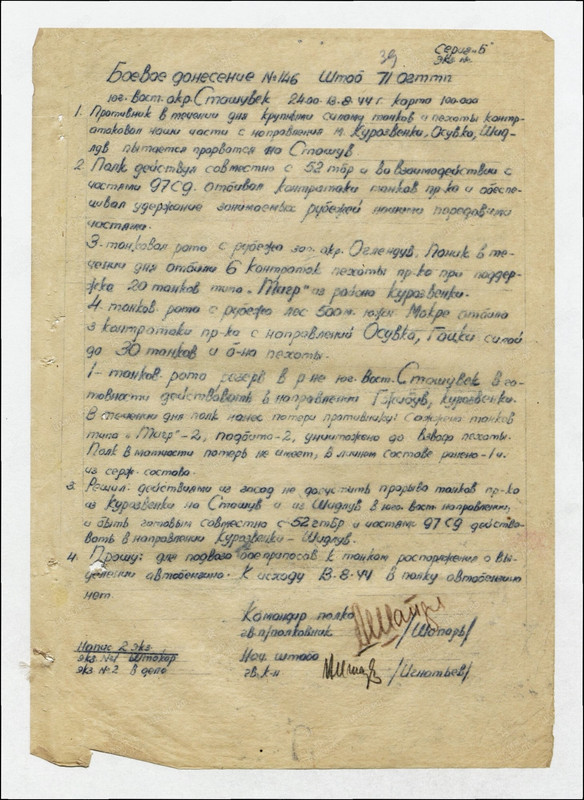 39
Серия „Б"
Экз. №
Боевое донесение №146 Штаб 71 огттп
юг. вост. окр. Сташувек 24.00 13.8.44 г. карта 100.000
1. Противник в течении дня крупными силами танков и пехоты контр-
атаковал наши части с направления м. Курозвенки, Осувка, Шид-
лув пытается прорватся на Сташув.
2. Полк действуя совместно с 52 тбр и во взаимодействии с
частями 97 СД. отбивал контратаки танков пр-ка и обеспе-
чивал удержание занимаемых рубежей нашими передовыми
частями.
3-танковая рота с рубежа зап. окр. Оглендув, Поник в те-
чении дня отбили 6 контратак пехоты пр-ка при поддер-
жка 20 танков типа „Тигр" из района Курозвенки.
4. танков. рота с рубежа лес 500м. южн. Мокре отбила
3 контратаки пр-ка с направлений Осувка, Гайки силой
до 30 танков и б-на пехоты.
1- танков. рота резерв в р-не юг. вост. Сташувек в го-
товности действовать в направлении Гжибув, Курозвенки.
В течении дня полк нанес потери противнику: Сожжено танков
типа „Тигр"-2, подбито-2, уничтожено до взвода пехоты.
Полк в матчасти потерь не имеет, в личном составе ранено-1ч.
из серж. состава.
3. Решил: действиями из засад не допустить прорыва танков пр-ка
из Курозвенки на Сташув и из Шидлув в юго. вост. направлении,
и быть готовым совместно с 52 гтбр и частями 97 СД действо-
вать в направлении Курозвенки - Шидлув.
4. Прошу: для подвоза боеприпасов к танкам распоряжения о вы-
делении автобензина. К исходу 13-8-44 в полку автобензина
нет.
Командир полка
гв. п/полковник /Шапарь/
Нач. штаба
гв. к-н /Игнатьев/
Напис 2 экз.
экз. №1 Штакор
экз. №2 в дело